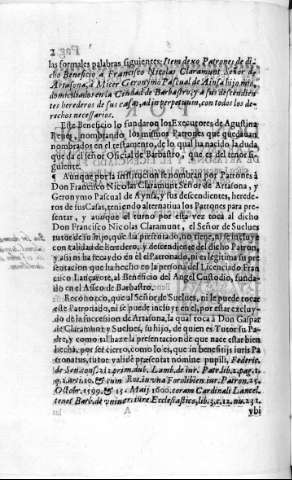 2
las formales palabras siguientes: Item dexo Patrones de di-
cho Beneficio a Francisco Nicolas Claramunt Señor de
Artasona, à Micer Geronymo Pascual de Ainsa hijo mio,
domiciliados en la Ciudad de Barbastro, y à sus descendien-
tes herederos de sus casas, ad in perpetuum, con todos los de-
rechos necessarios.
Este Beneficio lo fundaron los Executores de Agustina
nombrando los mismos Patrones que quedauan
nombrados en el testamento, de lo qual ha nacido la duda,
que dà el señor Oficial de Barbastro, que es del tenor si-
guiente.
Aunque por la institucion se nombran por Patrones à
Don Francisco Nicolas Claramunt Señor de Artasona, y
Geronymo Pascual de Aynsa, y sus descendientes, herede-
ros de sus Casas, teniendo alternatiua los Patrones para pre-
sentar, y aunque el turno por esta vez toca al dicho
Don Francisco Nicolas Claramunt, el Señor de Suelues
tutor de su hijo, que ha presentado, no tiene, ni se incluye
con calidad de heredero, y descendiente del dicho Patron,
y assi no ha recaydo en èl el Patronado, ni es legitima su pre-
sentacion que ha hecho en la persona del Licenciado Fran-
cisco Latorre, al Beneficio del Angel Custodio, funda-
do en el Asseo de Barbastro.
Reconozco, que al Señor de Suelues, ni le puede tocar
este Patronado, ni se puede incluyr en el, por estar exclu-
do de la succession de Artasona, la qual toca à Don Gaspar
de Claramunt y Suelues, su hijo, de quien es Tutor su Pa-
dre, y como tal haze la presentacion de que nace estar bien
hecha, por ser cierto, como lo es, que in beneficijs iuris Pa-
tronatus, tutor valide præsentat nomine pupilli, Federic.
de Sen. cons. 212. prim. dub. Lamb. de iur. Patr. lib. 2. pag. 1.
q. 1. art. 10. & cum Rot. in vna Foroliuien. iur. Patron. 25.
Octobr. 1599. & 15. Maij 1600. coram Cardinali Lancel.
tenet Barb. de vniuer. iure Ecclesiastico, lib. 3. c. 12. nu. 232.
A
vbi